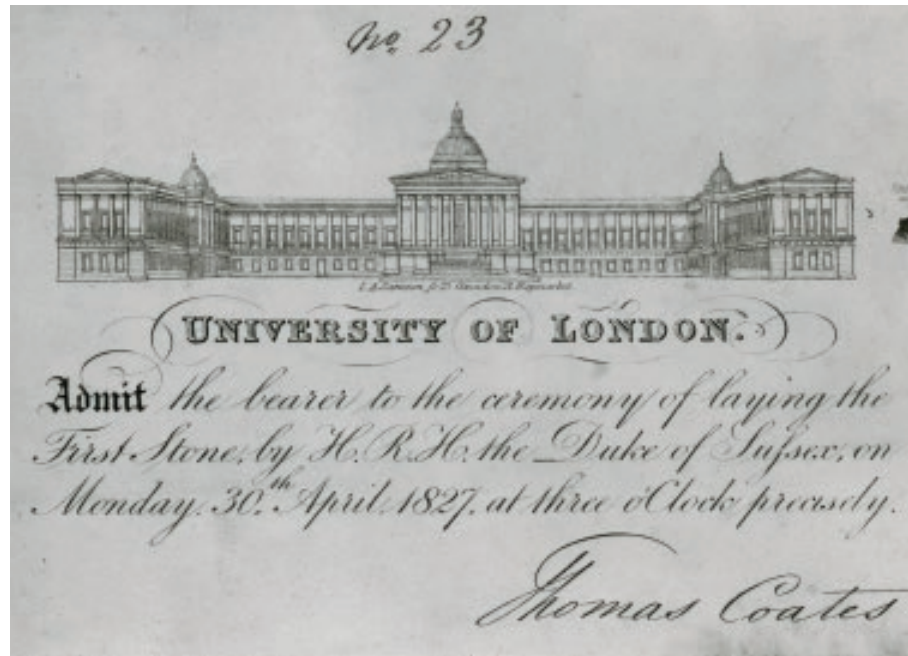 No. 23
UNIVERSITY OF LONDON.
Admit the bearer to the ceremony of laying the
First Stone, by H.R.H. the Duke of Sufsex, on
Monday. 30.th April. 1827. at three o'Clock precisely.
Thomas Coates